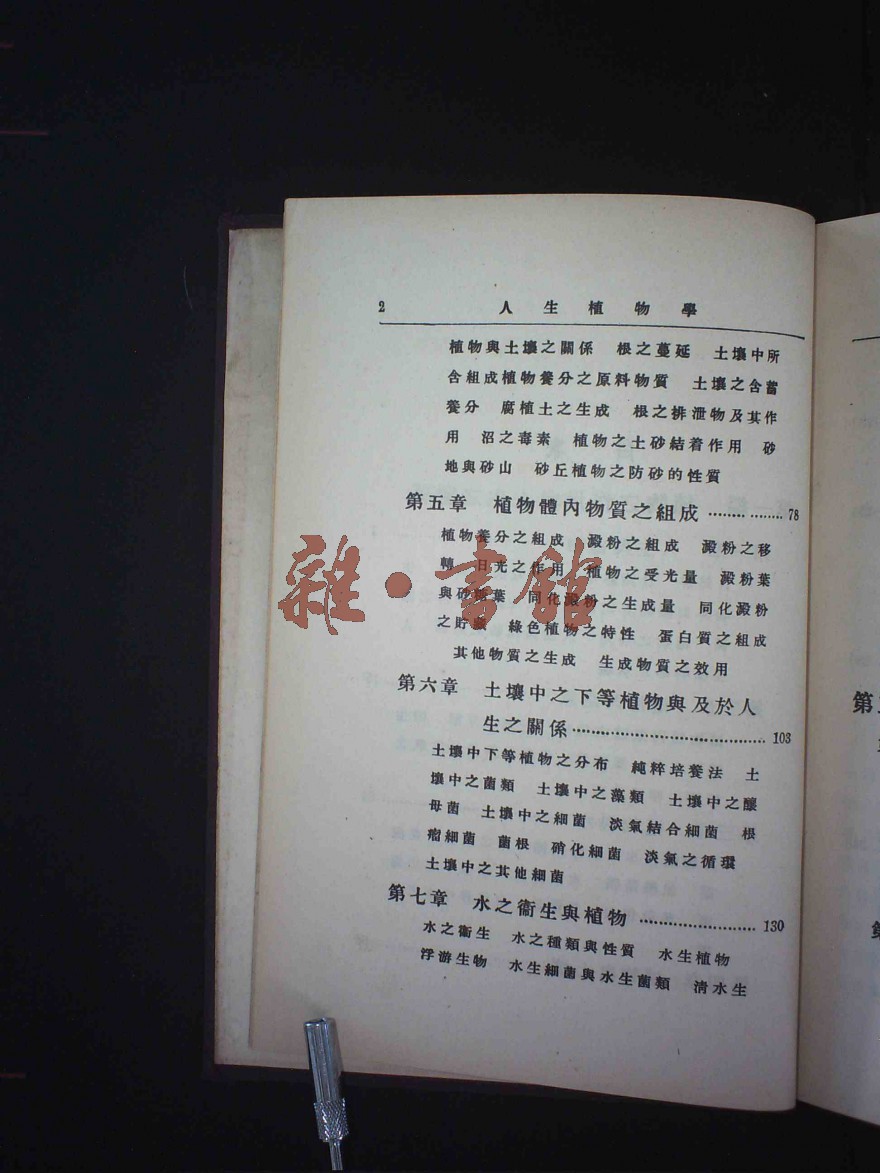 2 人生植物學
植物與土壤之關係 根之蔓延 土壤中所
含組成植物養分之原料物質 土壤之含蓄
養分 腐植土之生成 根之排泄物及其作
用 沼之毒素 植物之土砂結着作用 砂
地與砂山 砂丘植物之防砂的性質
第五章 植物體內物質之組成 ……………78
植物養分之組成 澱粉之組成 澱粉之移
轉 日光之作用 植物之受光量 澱粉葉
與砂糖葉 同化澱粉之生成量 同化澱粉
之貯藏 綠色植物之特性 蛋白質之組成
其他物質之生成 生成物質之效用
第六章 土壤中之下等植物與及於人
生之關係……………………………103
土壤中下等植物之分布 純粹培養法 土
壤中之菌類 土壤中之藻類 土壤中之釀
母菌 土壤中之細菌 淡氣結合細菌 根
瘤細菌 菌根 硝化細菌 淡氣之循環
土壤中之其他細菌
第七章 水之衞生與植物 …………………130
水之衞生 水之種類與性質 水生植物
浮游生物 水生細菌與水生菌類 清水生
雜·書館
第
第